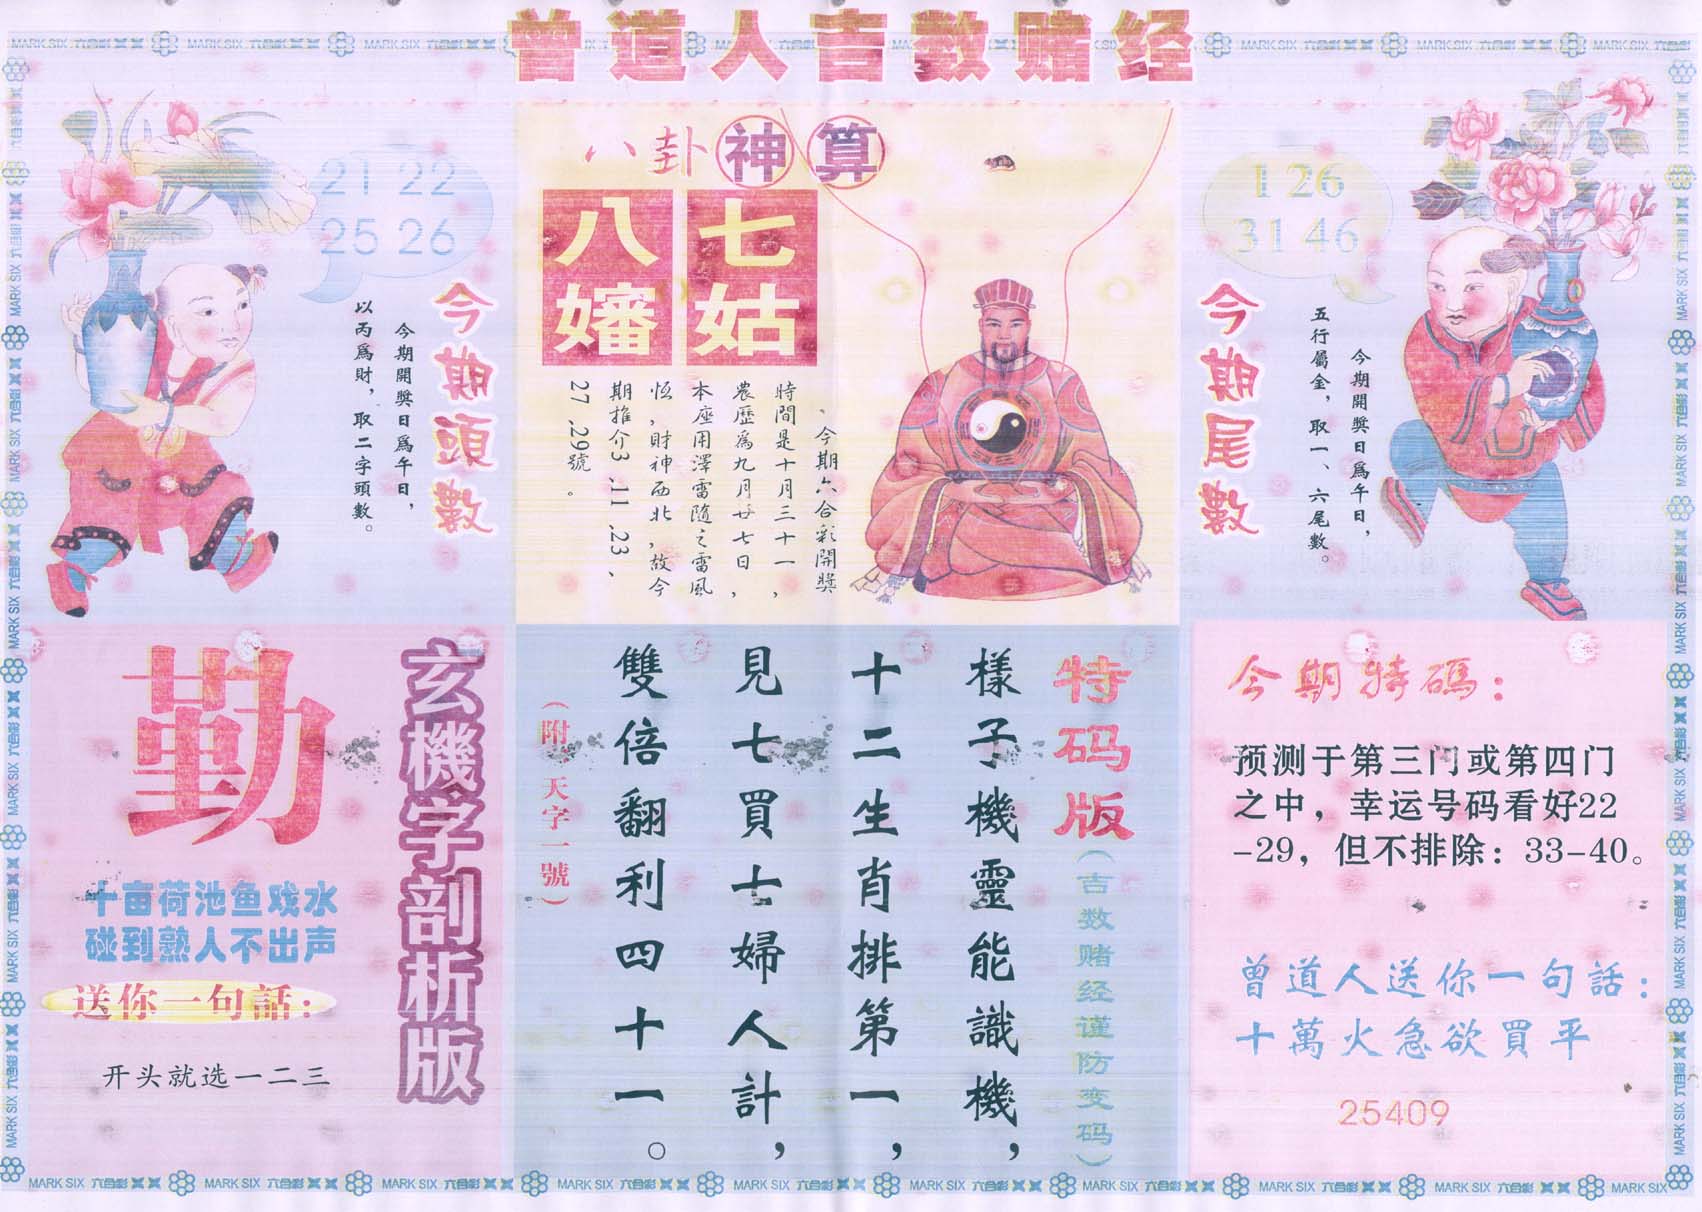 曾道人吉数赌经
21 22
25 26
今期頭數
今期開獎日爲午日，
以丙爲財，取二字頭數。
八卦神算
七姑
八嬸
、今期六合彩開獎
時間是十月三十一，
農歷爲九月廿七日，
本座用澤雷隨之雷風
恆，財神西北，故今
期推介3、11、23、
27、29號。
1 26
31 46
今期尾數
今期開獎日爲午日，
五行屬金，取一、六尾數。
玄機字剖析版
勤
十亩荷池鱼戏水
碰到熟人不出声
送你一句話：
开头就选一二三
特码版
（吉数赌经谨防变码）
樣子機靈能識機，
十二生肖排第一，
見七買士婦人計，
雙倍翻利四十一。
（附：天字一號）
今期特碼：
预测于第三门或第四门
之中，幸运号码看好22
-29，但不排除：33-40。
曾道人送你一句話：
十萬火急欲買平
25409
MARK SIX 六合彩